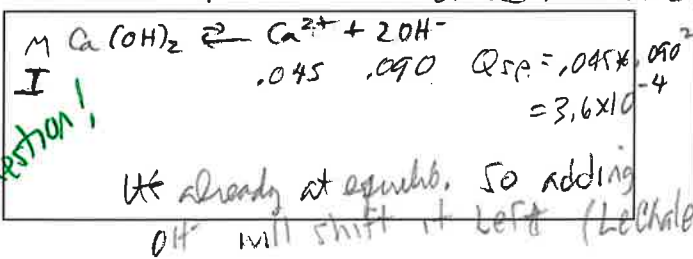 M Ca(OH)₂ ⇌ Ca²⁺ + 2OH⁻
I .045 .090 Qsp = .045 * .090²
= 3.6x10⁻⁴
estion!
already at equilib. So adding
OH⁻ will shift it Left (LeChate